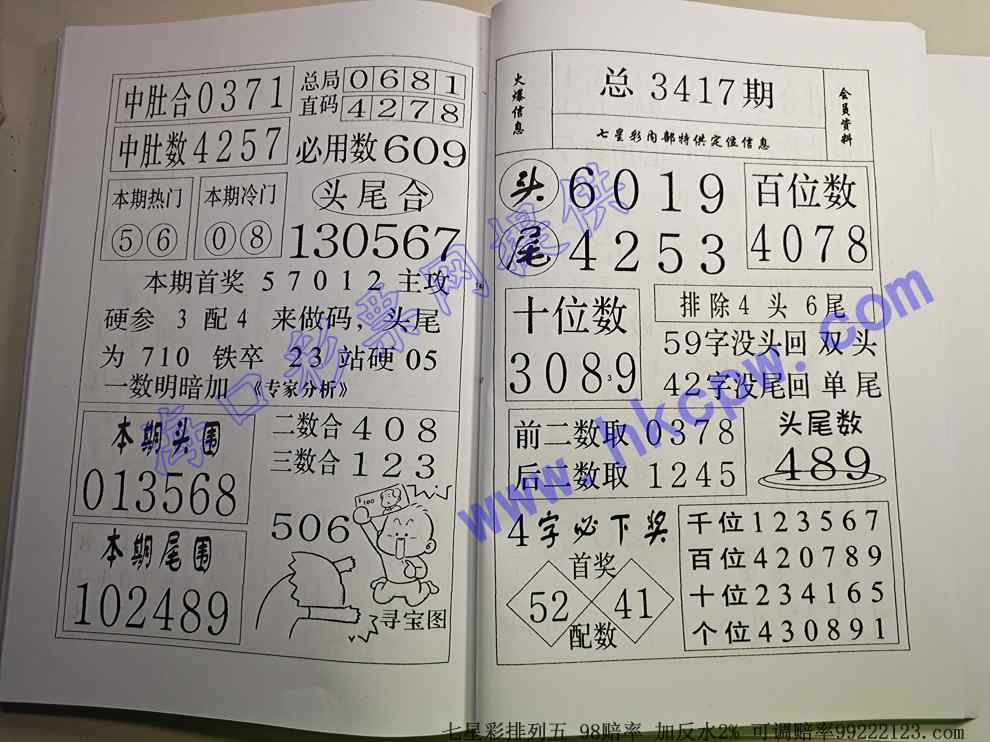 中肚合0371
总局 0681
直码 4278
中肚数4257
必用数609
本期热门
⑤⑥
本期冷门
⓪⑧
头尾合
130567
本期首奖 57012 主攻
硬参 3 配4 来做码，头尾
为 710 铁卒 23 站硬 05
一数明暗加 《专家分析》
本期头围
013568
本期尾围
102489
二数合 408
三数合 123
100
506
寻宝图
火爆信息
总 3417期
七星彩内部特供定位信息
会员资料
头 6019
尾 4253
百位数
4078
十位数
3089
3
排除4 头 6尾
59字没头回 双 头
42字没尾回 单 尾
前二数取 0378
后二数取 1245
头尾数
489
4字必下奖
首奖
52 41
配数
千位123567
百位420789
十位234165
个位430891
海口彩票网提供
www.hkcpw.com
七星彩排列五 98赔率 加反水2% 可调赔率99222123.com